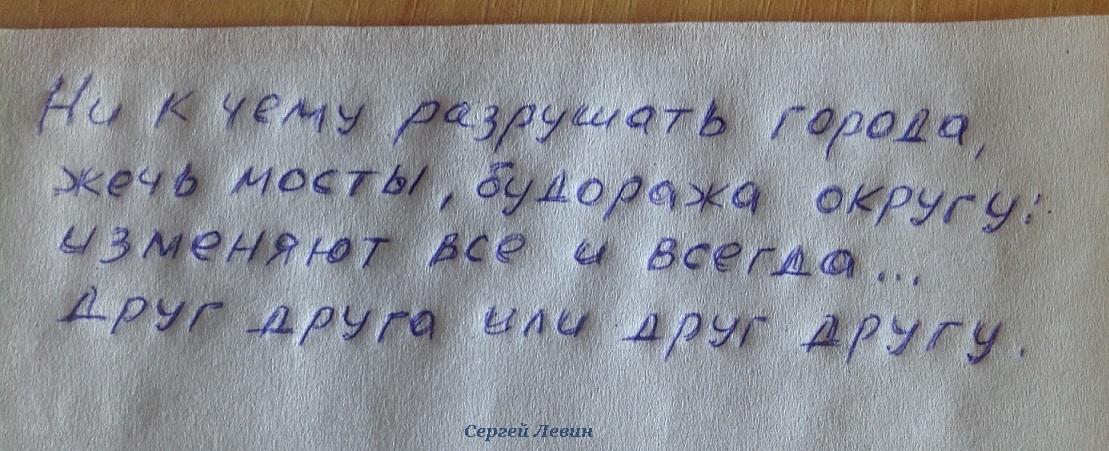 Ни к чему разрушать города,
жечь мосты, будоража округу:
изменяют все и всегда...
Друг друга или друг другу.
Сергей Левин